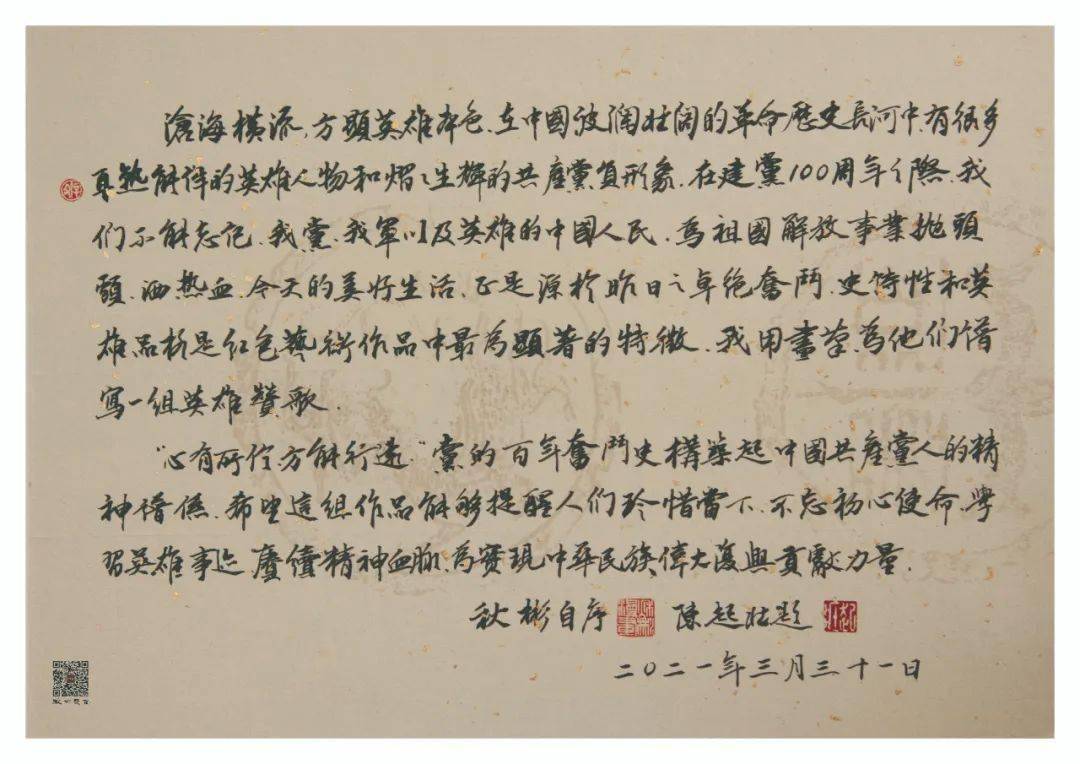 滄海橫流，方顯英雄本色，在中國波瀾壯闊的革命歷史長河中，有很多
真摯鮮活的英雄人物和熠熠生輝的共產黨員形象。在建黨100周年之際，我
们不能忘記，我黨、我軍以及英雄的中國人民，為祖國解放事業拋頭
顱，洒热血，今天的美好生活，正是源於昨日之卓絕奮鬥，史詩性和英
雄品格是紅色藝術作品中最為顯著的特徵，我用畫筆為他们譜
寫一組英雄贊歌。
“心有所信，方能行遠”黨的百年奮鬥史構築起中國共產黨人的精
神譜係，希望這組作品能够提醒人们珍惜當下，不忘初心使命，學
習英雄事迹，賡續精神血脈，為實現中華民族偉大復興貢獻力量。
秋彬自序 陳起壯題
二〇二一年三月三十一日